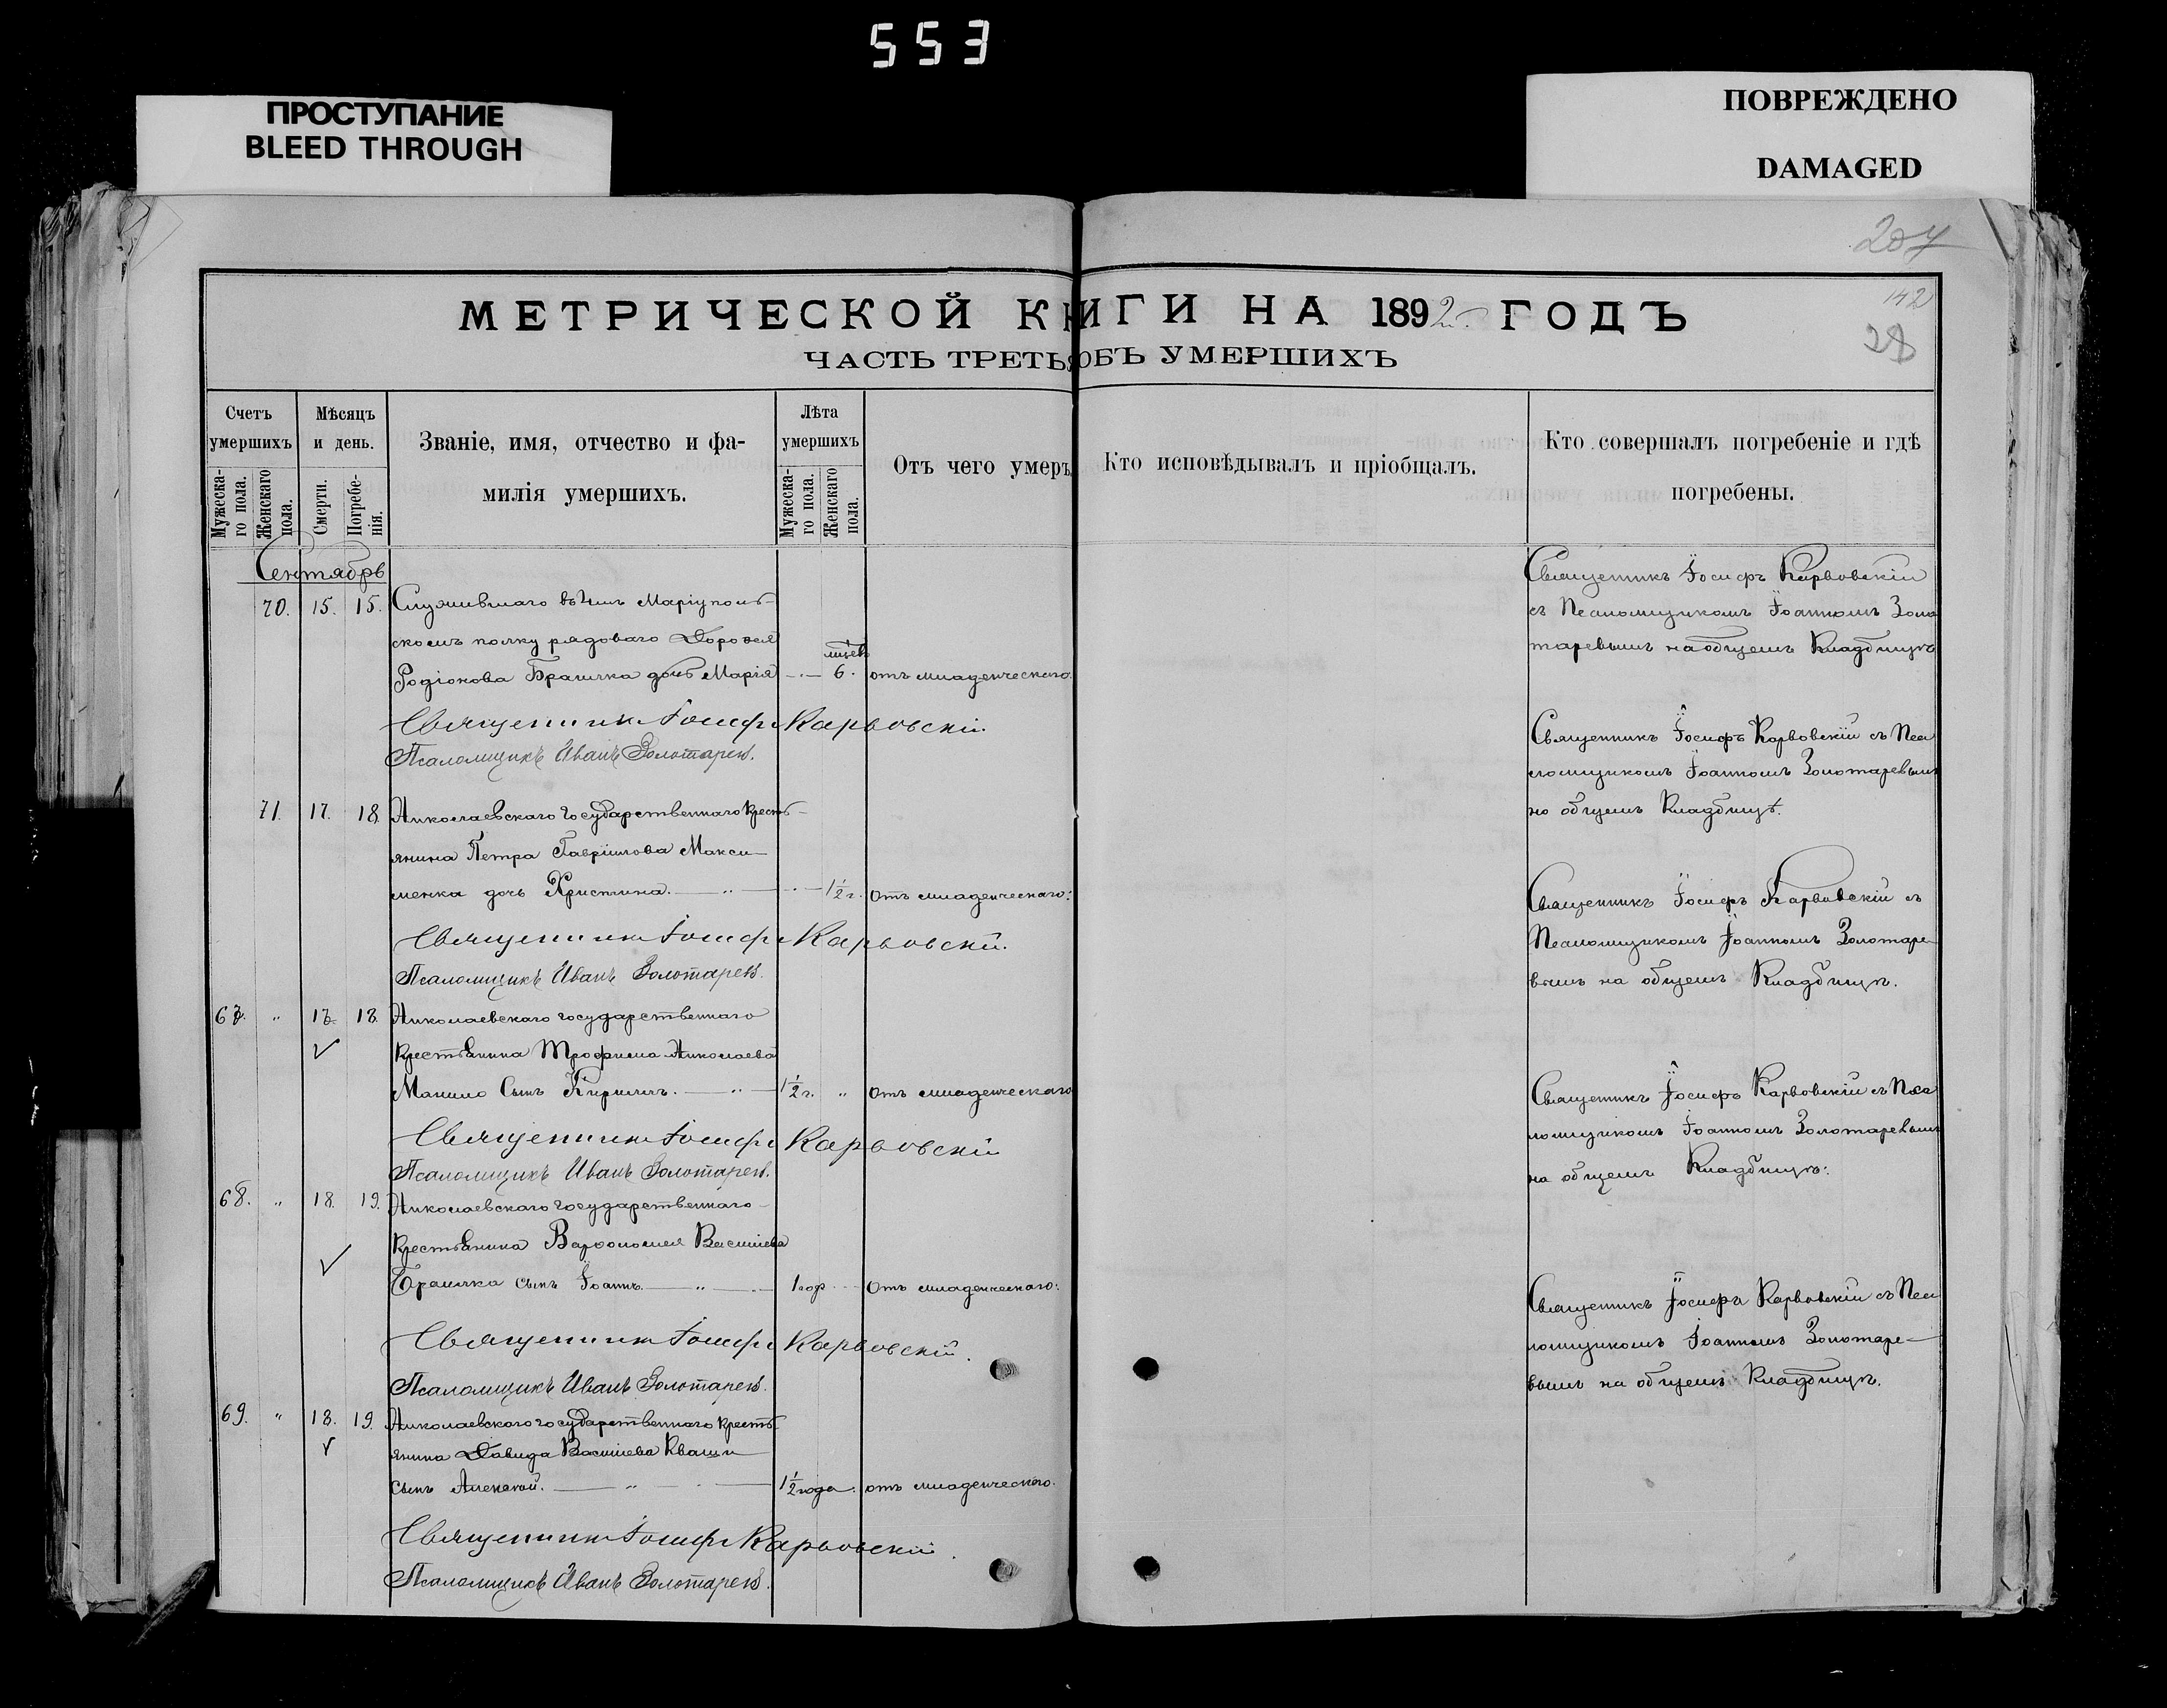 553
ПРОСТУПАНИЕ
BLEED THROUGH
ПОВРЕЖДЕНО
DAMAGED
207
142
28
МЕТРИЧЕСКОЙ КНИГИ НА 1892 ГОДЪ
ЧАСТЬ ТРЕТЬЯ ОБЪ УМЕРШИХЪ
Счетъ умершихъ
Мужеска-го пола.
Женскаго пола.
Мѣсяцъ и день.
Смерти.
Погребе-нія.
Званіе, имя, отчество и фа-
милія умершихъ.
Лѣта умершихъ
Мужеска-го пола.
Женскаго пола.
Отъ чего умеръ
Кто исповѣдывалъ и пріобщалъ.
Кто совершалъ погребеніе и гдѣ
погребены.
Сентябрь
70. 15. 15. Служившаго въ Маріуполь-
скомъ полку рядоваго Дорофея
Родіонова Брашка дочь Марія 6. мѣсев отъ младенческаго.
Священникъ Іосифъ Карвовскій
съ Псаломщикомъ Іоанномъ Золо
таревымъ на общемъ Кладбищѣ
Священникъ Іосифъ Карвовскій.
Псаломщикъ Иванъ Золотаревъ.
71. 17. 18. Николаевскаго Государственнаго кресть-
янина Петра Гавріилова Макси-
менка дочь Христина. 1½ г. отъ младенческаго:
Священникъ Іосифъ Карвовскій съ Пса
ломщикомъ Іоанномъ Золотаревымъ
на общемъ Кладбищѣ.
Священникъ Іосифъ Карвовскій.
Псаломщикъ Иванъ Золотаревъ.
67. " 17. 18. Николаевскаго государственнаго
крестьянина Трофима Николаева
Манило Сынъ Кириллъ. 1½ г. " отъ младенческаго
Священникъ Іосифъ Карвовскій съ
Псаломщикомъ Іоанномъ Золотаре-
вымъ на общемъ Кладбищѣ.
Священникъ Іосифъ Карвовскій
Псаломщикъ Иванъ Золотаревъ.
68. " 18. 19. Николаевскаго государственнаго
крестьянина Варфоломея Василіева
Брашка сынъ Іоаннъ. 1 год отъ младенческаго:
Священникъ Іосифъ Карвовскій съ Пса
ломщикомъ Іоанномъ Золотаревымъ
на общемъ Кладбищѣ:
Священникъ Іосифъ Карвовскій.
Псаломщикъ Иванъ Золотаревъ.
69. " 18. 19. Николаевского государственнаго кресть-
янина Давида Василіева Кваши
сынъ Алексѣй. 1½ года. отъ младенческаго.
Священникъ Іосифъ Карвовскій съ Пса
ломщикомъ Іоанномъ Золотаре-
вымъ на общемъ Кладбищѣ.
Священникъ Іосифъ Карвовскій.
Псаломщикъ Иванъ Золотаревъ.